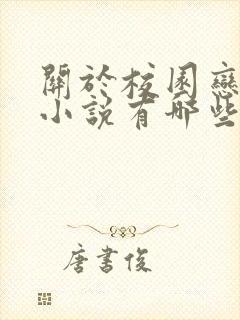 關於校園戀
小說有哪些
唐書俊